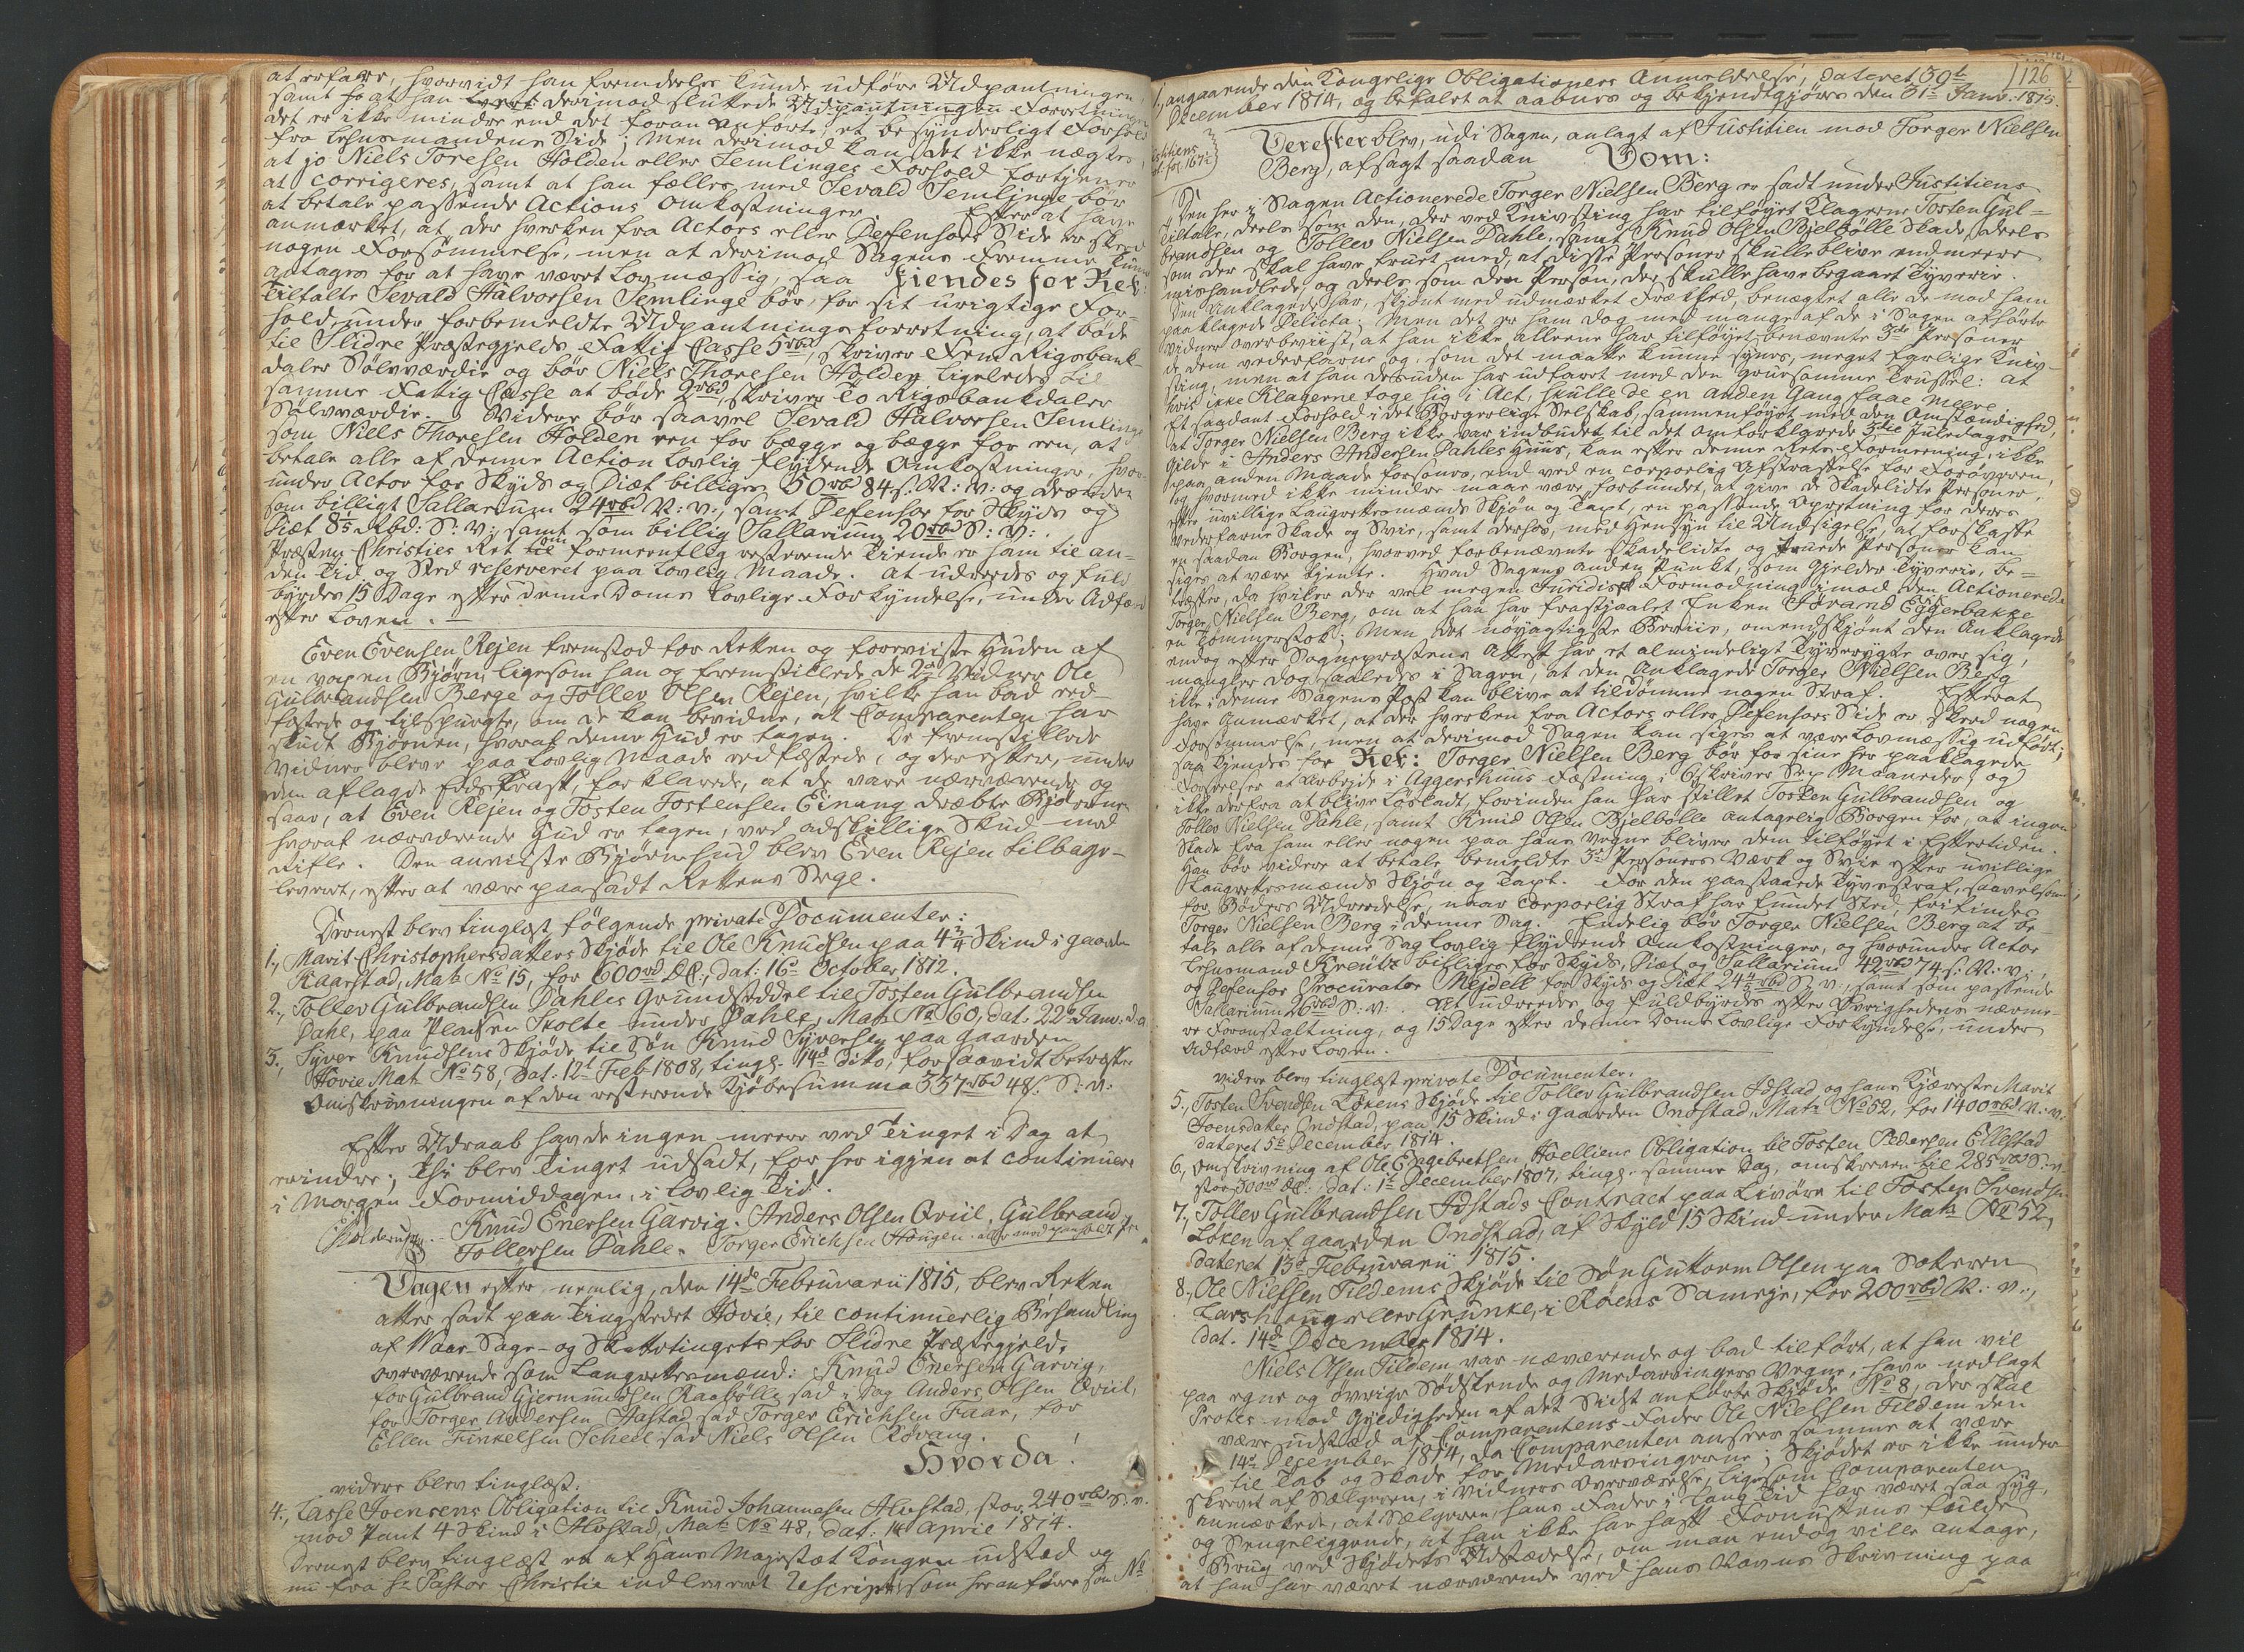 at erfare, hvorvidt han fremdeeles kunde udföre Udpantningen,
samt før at han lært derimod sluttede Udpantningen Forretningen
det er ikke mindre end det foran anførte, et besynderligt Forhold
fra Lehnsmandens Side; Men derimod kan det ikke nægtes,
at jo Niels Toresen Holden eller Semlinges Forhold fortjener
at corrigeres, samt at han fælles med Sevald Semlinge bør
at betale passende Actions Omkostninger. Efter at have
anmærket, at der hverken fra Actors eller Defensors Side er skeed
nogen Forsömmelse, men at derimod Sagens Fremme kunde
antages for at have været Lovmæssig, saa kiendes for Ret:
Tiltalte Sevald Halvorsen Semlinge bør, for sit urigtige For-
hold under forbemeldte Udpantnings forretning, at bøde
til Slidre Præstegjelds Fattig Casse 5 rbd, skriver Fem Rigsbank-
daler Sölvværdie og bør Niels Thoresen Holden ligeledes til
samme Fattig Casse at bøde 2 rbd, skriver To Rigsbankdaler
Sölvværdie. Videre bør saavel Sevald Halvorsen Semlinge
som Niels Thoresen Holden een for begge og begge for een, at
betale alle af denne Action lovlig flydende Omkostninger, hvor-
under Actor for Skyds og Diæt billiges 50 rbd 84 s. N: V: og desuden
som billigt Sallarium 24 rbd N: V:, samt Defensor for Skyds og
Diæt 85 Rbd: S: V:, samt som billig Sallarium 20 rbd S: V:.
Præsten Christies Ret til om formeentlig resterende Tiende er ham til an-
den Tid og Sted reserveret paa lovlig Maade. At udredes og fuld-
byrdes 15 Dage efter denne Doms lovlige Forkyndelse, under Adfærd
efter Loven.
Even Evensen Rejen fremstod for Retten og foreviiste Huden af
en voxen Bjørn, ligesom han og fremstillede de 2de Vidner Ole
Gulbrandsen Berge og Tollev Olsen Rejen, hvilke han bad eed-
fæstede og tilspurgte, om de kan bevidne, at Comparenten har
skudt Bjørnen, hvoraf denne Hud er tagen. De fremstillede
Vidner bleve paa lovlig Maade eedfæstede, og der efter, under
den aflagde Eeds Kraft, forklarede, at de vare nærværende og
saae, at Even Rejen og Tosten Tostensen Einang dræbte Bjørnen
hvoraf nærværende Hud er tagen, ved adskillige Skud med
Rifle. Den anviiste Bjørnehud blev Even Rejen tilbage-
leveret, efter at være paasadt Rettens Segl.
Dernest blev tinglæst følgende private Documenter:
1., Marit Christophersdatters Skjøde til Ole Knudsen paa 4 3/4 Skind i Gaarden
Kaarstad, Matr No 15, for 600 rd DC:, dat: 16de October 1812.
2., Tollev Gulbrandsen Dahles Grundseddel til Tosten Gulbrandsen
Dahl, paa Pladsen Stolte under Dahle, Matr No 60, dat. 22de Janv. d. A.
3., Syver Knudsens Skjøde til Søn Knud Syversen paa Gaarden
Hovie Matr No 58, dat. 12te Feb 1808, tingl. 14de dito, forsaavidt betræffer
Omskrivningen af den resterende Kjøbesumma 337 rbd 48 s. S: V:
Efter Udraab havde ingen meere ved Tinget i Dag at
erindre; Thi blev Tinget udsadt, for her igjen at continuere
i Morgen Formiddagen, i lovlig Tid.
Knud Enersen Garvig. Anders Olsen Qviil. Gulbrand
Tollersen Dahle. Torger Erichsen Haugen
Dagen efter nemlig, den 14de Februarii 1815, blev Retten
atter sadt paa Tingstedet Hovie, til continuerlig Behandling
af Vaar-Sage- og Skattetinget for Slidre Præstegjeld,
overværende som Laugrettesmænd: Knud Enersen Garvig,
for Gulbrand Gjermundsen Raabølle sad i Dag Anders Olsen Qviil,
for Torger Andersen Hastad sad Torger Erichsen Faar, for
Ellen Finkelsen Scheel sad Niels Olsen Røvang.
Hvorda!
videre blev tinglæst:
4., Lasse Joensens Obligation til Knud Johannesen Alvstad, stor 240 rbd S: v:
mod Pant 4 Skind i Alvstad, Matr No 48, dat: 14 April 1814.
Dernest blev tinglæst et af Hans Majestæt Kongen udstæd og
nu fra Hr Pastor Christie indleveret Rescript som her anføres son No
126
1., angaaende den Kongelige Obligationers Anmeldelse, dateret 30te
December 1814, og befalet at aabnes og bekjendtgjøres den 31te Janv: 1815.
Derefter blev, udi Sagen, anlagt af Justitien mod Torger Nielsen
Berg, afsagt saadan Dom:
Den her i Sagen Actionerede Torger Nielsen Berg er sadt under Justitiens
Tiltale, deels som den, der ved Knivsting har tilføyet Klagerne Tosten Gul=
brandsen og Tollev Nielsen Dahle, samt Knud Olsen Bjelbølle Skade, deels
som der skal have truet med, at disse Personer skulle blive endmeere
mishandlede, og deels, som den Person, der skulle have begaaet Tyverie.
Den Anklagede har, skjønt med udmærket Frækhed, benægtet alle de mod ham
paaklagede Delicta; Men det er ham dog med mange af de i Sagen afhørte
Vidner overbeviist, at han ikke alleene har tilføyet benævnte 3de Personer
de dem vederfarne og, som det maatte kunne synes, meget farlige Kniv-
sting, men at han desuden har udfaret med den gruesomme Trussel: at
hvis ikke Klagerne toge sig i Act, skulle de en anden Gang faae Meere.
Et saadant Forhold i det Borgerlige Selskab, sammenføyet med den Omstændighed,
at Torger Nielsen Berg ikke var indbudet til det omforklarede 3die Juledags
Gilde i Anders Andersen Dahles Huus, kan efter denne Rets Formeening, ikke
paa anden Maade forsones, end ved en corporlig Afstraffelse for Forøveren,
og hvormed ikke mindre maae være forbundet, at give de Skadelidte Personer,
efter uvillige Laugrettesmænds Skjøn og Taxt, en passende Opretning for deres
vederfarne Skade og Svie, samt derhos, med Hensyn til Undsigelse, at forskaffe
en saadan Borgen, hvorved forbenævnte skadelidte og truede Personer kan
siges at være tjente. Hvad Sagens anden Punkt, som gjelder Tyverie, be-
træffer, da hviler der vel megen Juridisk Formodning imod den Actionerede
Torger Nielsen Berg, om at han har frastjaalet Enken Jørand Eggerbakke
en Tommerstok; Men det nøyagtigste Beviis, omendskjønt den Anklagede
endog efter Sognepræstens Attest har et almindeligt Tyverygte over sig,
mangler dog saaledes i Sagen, at den Anklagede Torger Nielsen Berg
ikke i denne Sagens Post kan blive at tildømme nogen Straf. Efterat
have anmærket, at der hverken fra Actors eller Defensors Side er skeed nogen
Forsømmelse, men at derimod Sagen kan siges at være Lovmæssig udført;
saa kjendes for Ret: Torger Nielsen Berg bør for sine her paaklagede
Forseelser at arbejde i Aggershuus Fæstning i 6, skriver Sex Maaneder, og
ikke derfra at blive løsladt, forinden han har stillet Tosten Gulbrandsen og
Tollev Nielsen Dahle, samt Knud Olsen Bjelbølle antagelig Borgen for, at ingen
Skade fra ham eller nogen paa hans Vegne bliver dem tilføyet i Eftertiden.
Han bør videre at betale bemeldte 3de Personers Værk og Svie efter uvillige
Laugrettesmænds Skjøn og Taxt. For den paastaaede Tyvestraf, saavelsom
for Bøders Udredelse, naar Corporlig Straf har fundet Sted, frifindes
Torger Nielsen Berg i denne Sag. Endelig bør Torger Nielsen Berg at be-
tale alle af denne Sag lovlig flydende Omkostninger, og hvorunder Actor
Lehnsmand Kreutz billiges for Skyds, Diæt og Sallarium 42 rbd 74 s: N: v:,
og Defensor Procurator Mejdell for Skyds og Diæt 24 rbd S: v:, samt som passende
Sallarium 26 rbd S: v:. At udredes og fuldbyrdes efter Øvrighedens nærme-
re Foranstaltning, og 15 Dage efter denne Doms lovlige Forkyndelse, under
Adfærd efter Loven.
videre blev tinglæst private Documenter:
5., Tosten Svendsen Løkens Skjøde til Tollev Gulbrandsen Idstad og hans Kjæreste Marit
Joensdatter Ondstad, paa 15 Skind i Gaarden Ondstad, Matr No 52, for 1400 rbd N: v:
dateret 5te December 1814.
6., Omskrivning af Ole Engebretsen Hoelliens Obligation til Tosten Pedersen Ellestad
stor 300 rd DC: dat: 1te December 1807, tingl. samme Dag, omskreven til 285 rbd S: v.
7., Tollev Gulbrandsen Idstads Contract paa Livøre til Tosten Svendsen
Løken af Gaarden Ondstad, af Skyld 15 Skind under Matr No 52,
dateret 13de Februarii 1815.
8., Ole Nielsen Fildems Skjøde til Søn Guttorm Olsen paa Sæteren
Larshaug eller Grunke, i Røens Sameye, for 200 rbd N: v:,
dat. 14de December 1814.
Niels Olsen Fildem var næværende og bad tilført, at han vil
paa egne og øvrige Sødskende og Medarvingers Vegne, have nedlagt
Protest mod Gyldigheden af det Sidst anførte Skjøde No 8, der skal
være udstæd af Comparentens Fader Ole Nielsen Fildem den
14de December 1814, da Comparenten ansees samme at være
til Tab og Skade for Medarvingerne; Skjødet er ikke under
skrevet af Sælgeren, i Vidners Overværelse, ligesom Comparenten
anmærkede, at Sælgeren, hans Fader i lang Tid har været saa syg,
og Sengeliggende, at han ikke har haft Fornuftens fulde
Brug ved Skjødets Udstædelse, om man endog ville antage,
at han har været nærværende ved hans Navns Skrivning paa